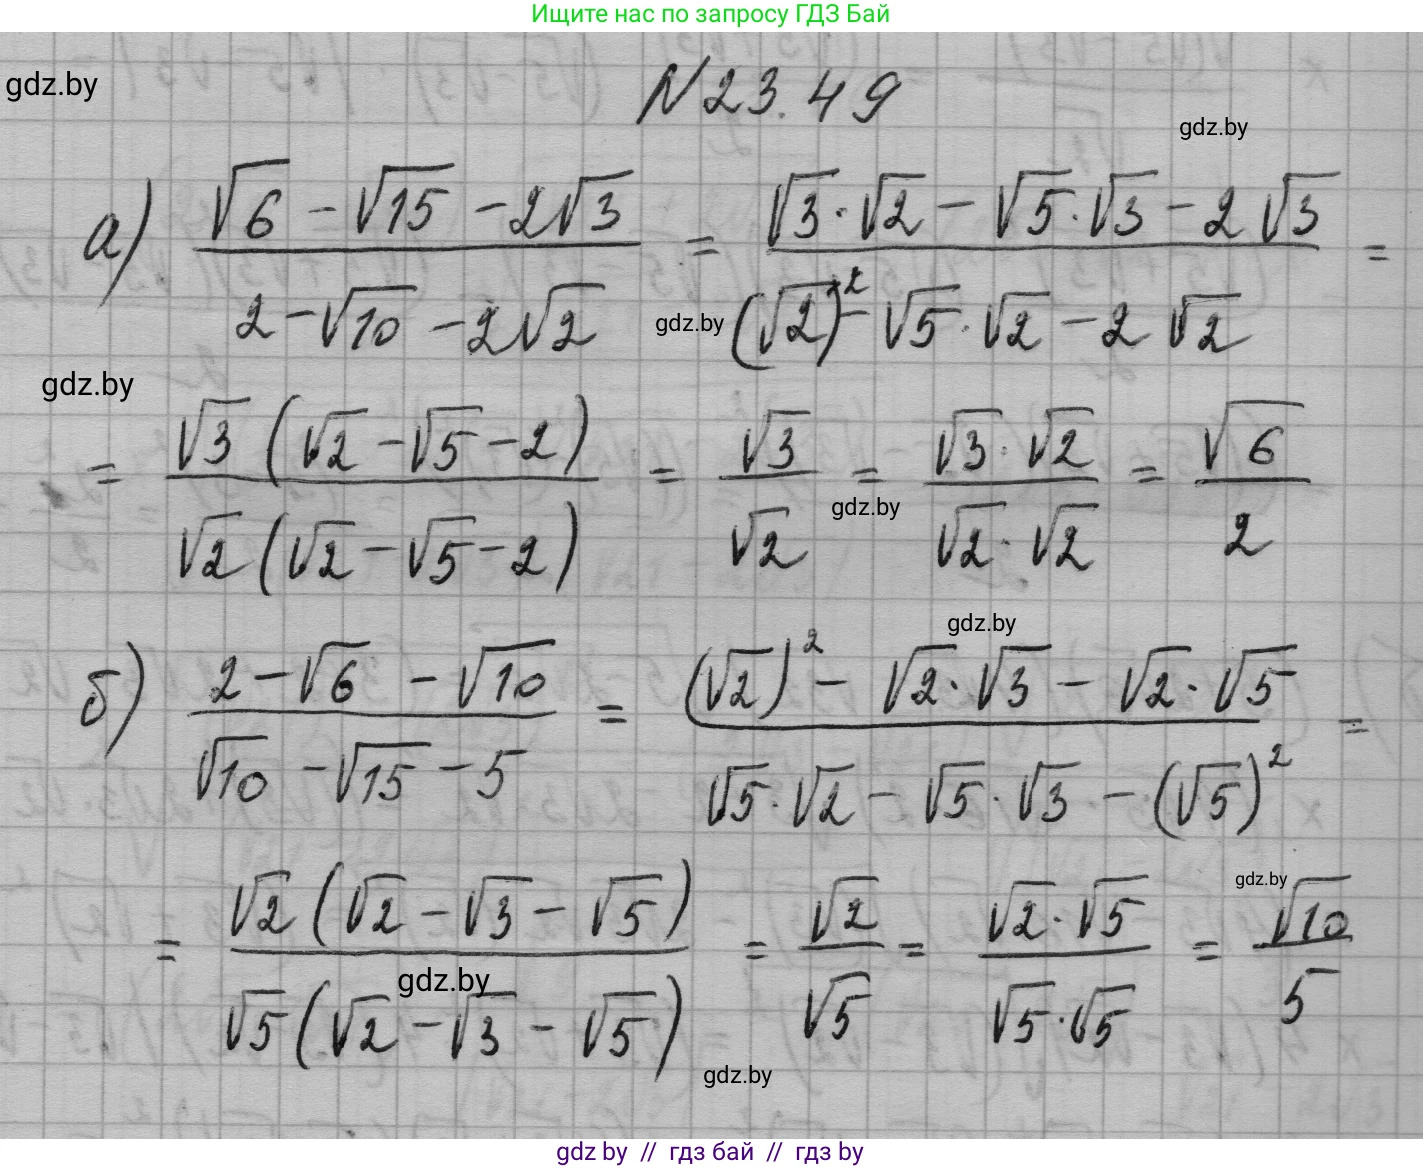 Ищите нас по запросу ГДЗ Бай
gdz.by
N 23.49
gdz.by
а) (√6 − √15 − 2√3)/(2 − √10 − 2√2) = (√3·√2 − √5·√3 − 2√3)/((√2)² − √5·√2 − 2√2) =
gdz.by
gdz.by
= (√3(√2 − √5 − 2))/(√2(√2 − √5 − 2)) = √3/√2 = (√3·√2)/(√2·√2) = √6/2
gdz.by
gdz.by
б) (2 − √6 − √10)/(√10 − √15 − 5) = ((√2)² − √2·√3 − √2·√5)/(√5·√2 − √5·√3 − (√5)²) =
gdz.by
= (√2(√2 − √3 − √5))/(√5(√2 − √3 − √5)) = √2/√5 = (√2·√5)/(√5·√5) = √10/5
gdz.by
gdz.by
gdz by // гдз бай // гдз by